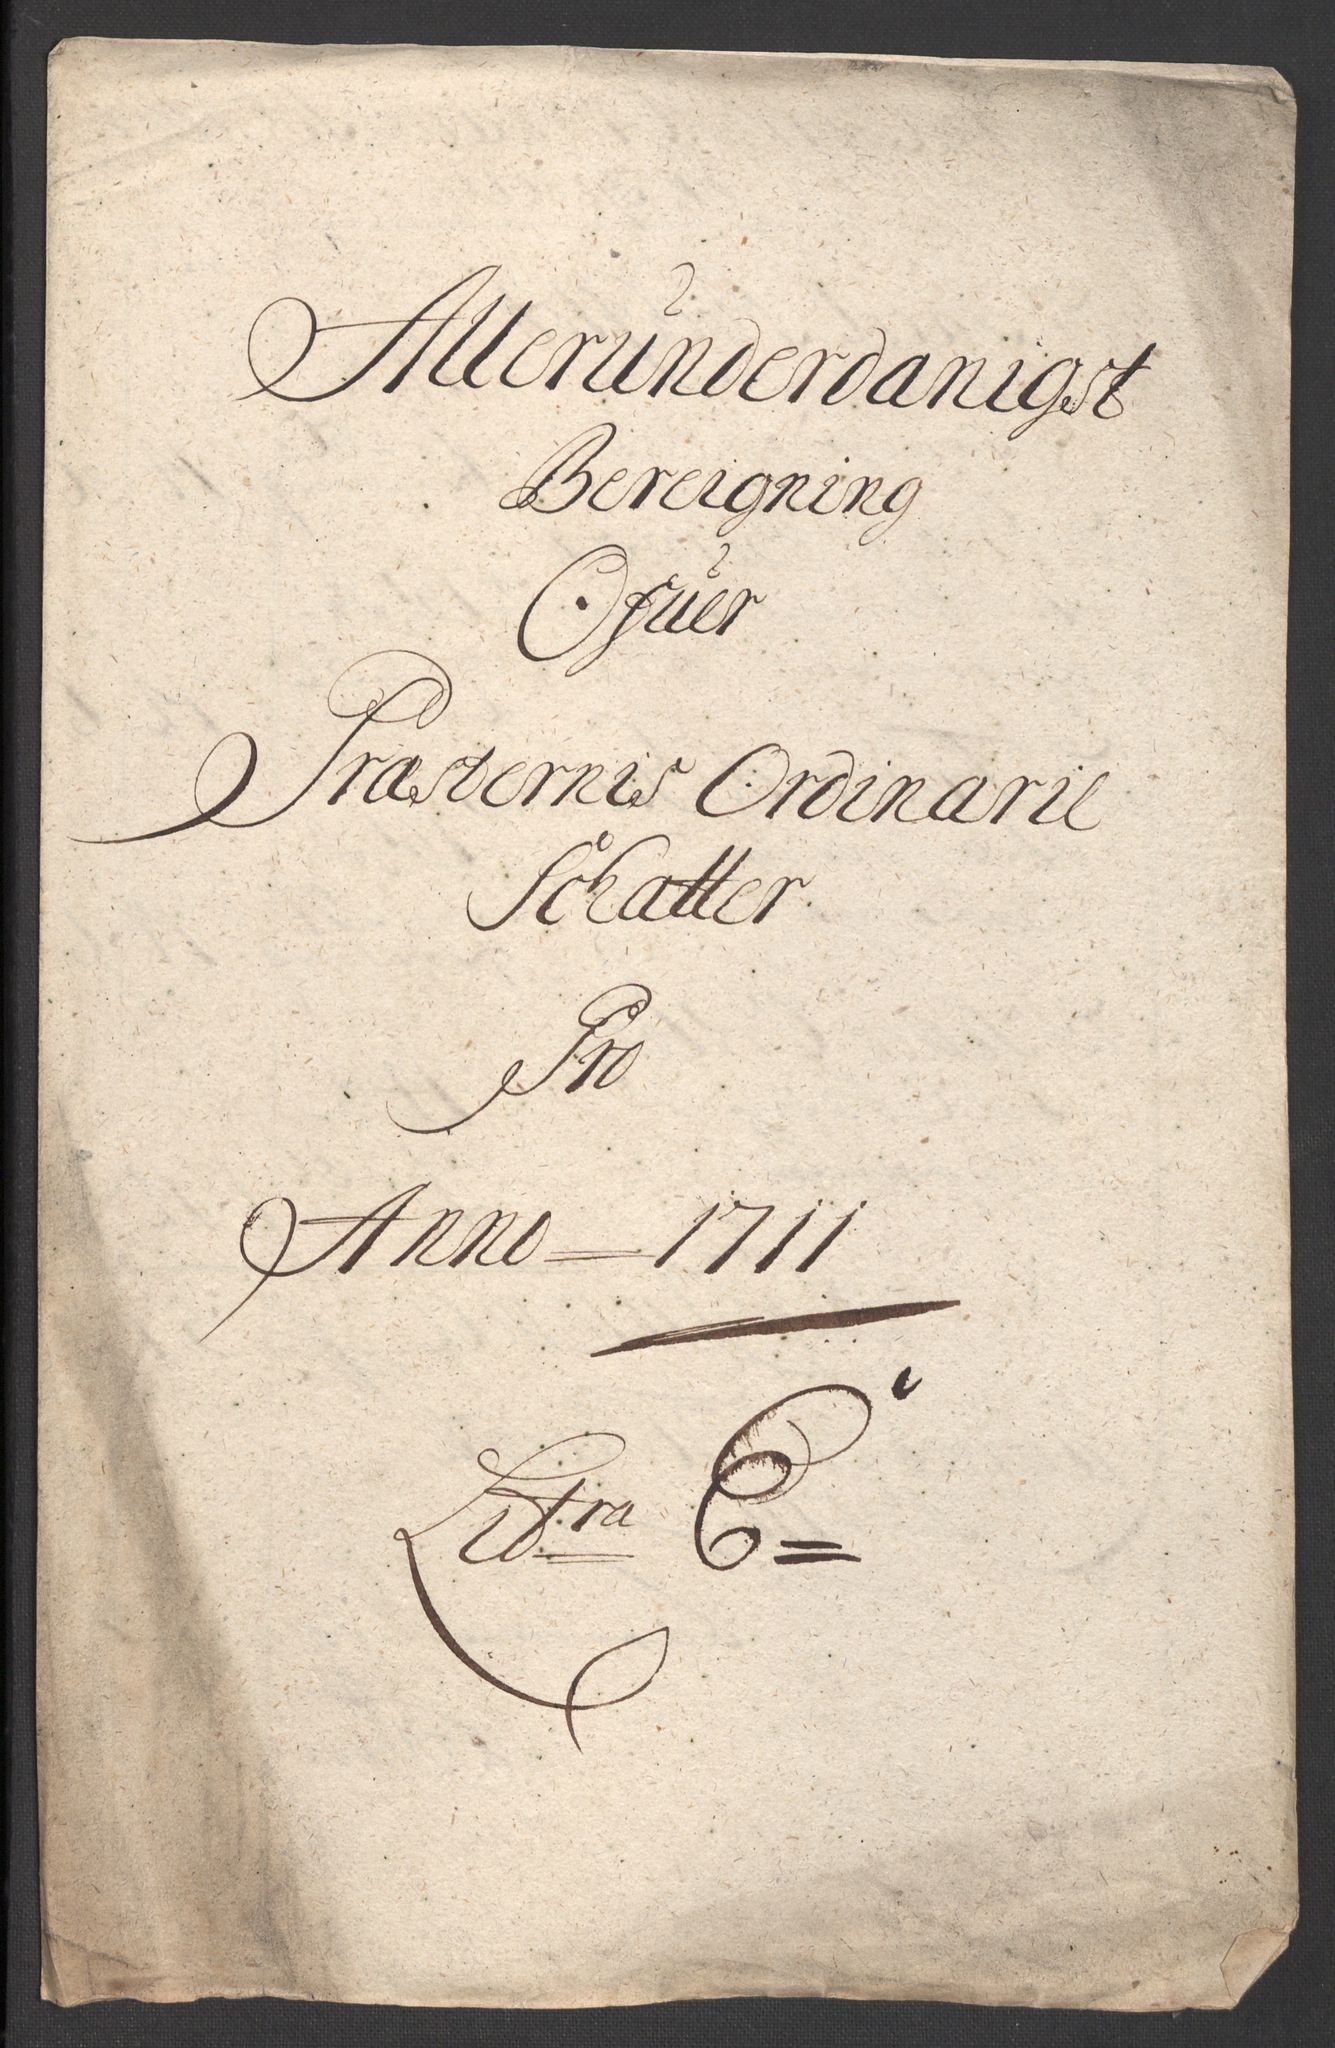 Allerunderdanigst
Bereigning
Ofuer
Præsternis Ordinarie
Schatter
Pro
Anno = 1711
Littra C =